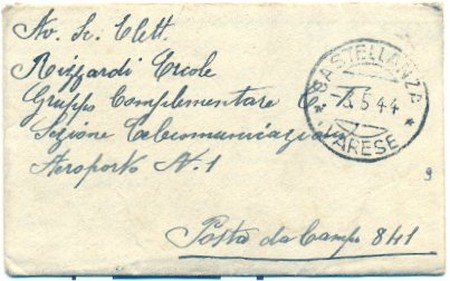 Av. Sc. Elett.
Rizzardi Ercole
Gruppo Complementare C
Sezione Telecomunicazioni
Aeroporto N. 1
Posta da Campo 841
CASTELLANZA
5 44
* VARESE *
9